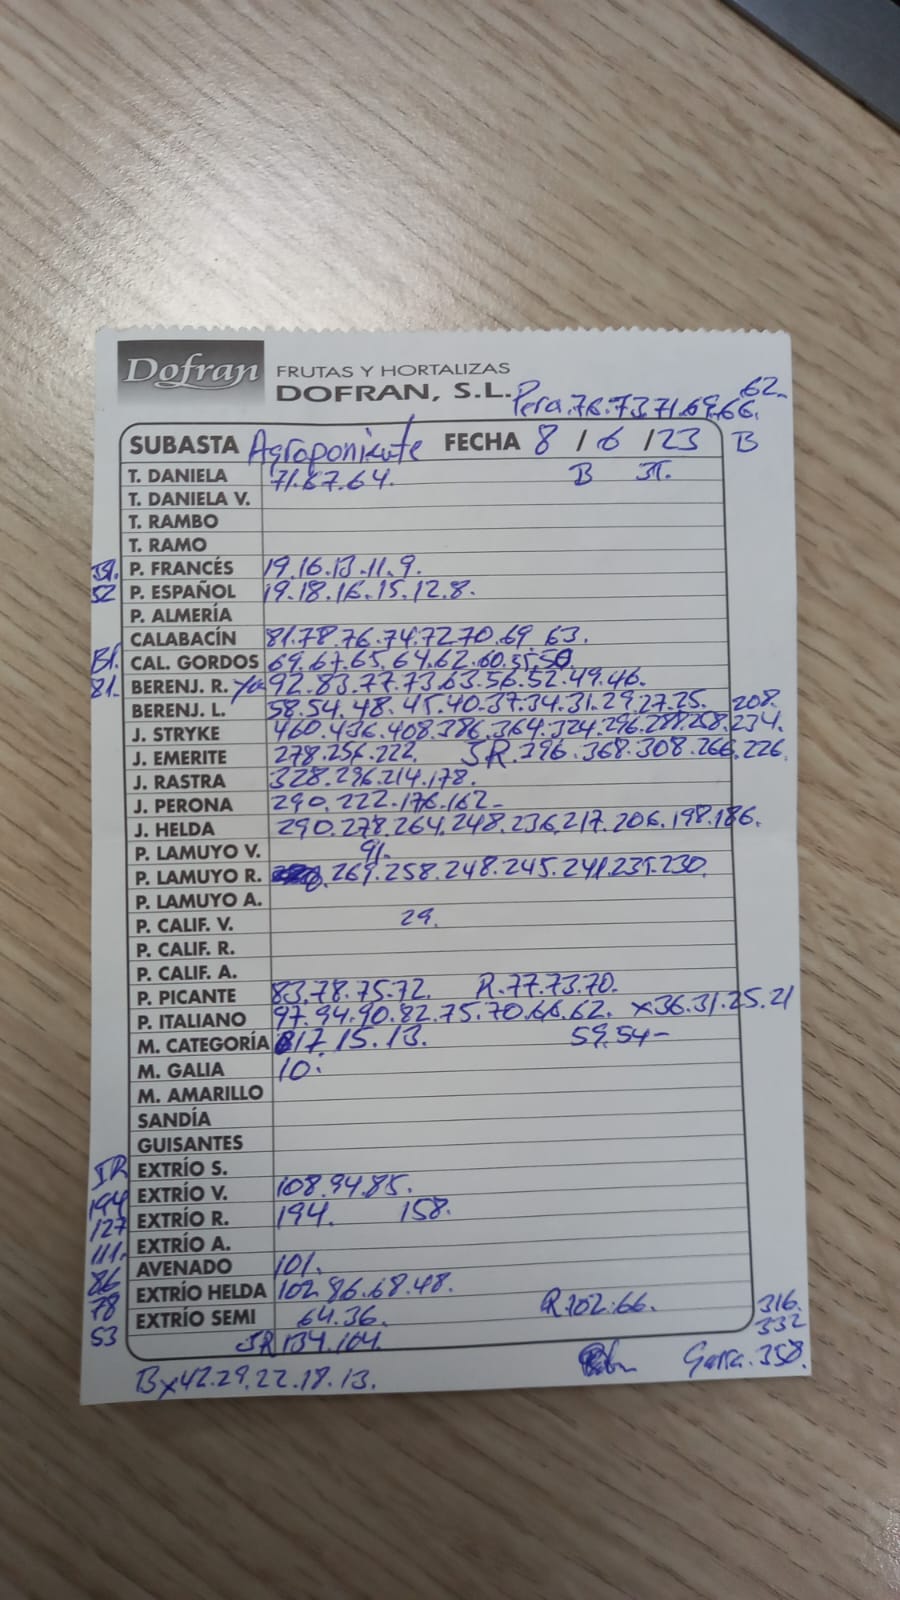 Dofran FRUTAS Y HORTALIZAS
DOFRAN, S.L. Pera.76.73.71.69.66. 62.
SUBASTA Agroponiente FECHA 8 / 6 /23 B
T. DANIELA 71.67.64. B 31.
T. DANIELA V.
T. RAMBO
T. RAMO
P. FRANCÉS 19.16.13.11.9.
52 P. ESPAÑOL 19.18.16.15.12.8.
P. ALMERÍA
CALABACÍN 81.78.76.74.72.70.69 63.
CAL. GORDOS 69.67.65.64.62.60.55.50.
81. BERENJ. R. 92.83.77.73.63.56.52.49.46.
BERENJ. L. 58.54.48.45.40.37.34.31.29.27.25. 208.
J. STRYKE 460.436.408.386.364.324.296.288.258.234.
J. EMERITE 278.256.222. SR.396.368.308.266.226.
J. RASTRA 328.296.214.178.
J. PERONA 290.222.176.162-
J. HELDA 290.278.264.248.236.217.206.198.186.
P. LAMUYO V. 91.
P. LAMUYO R. 269.258.248.245.241.235.230.
P. LAMUYO A.
P. CALIF. V. 29.
P. CALIF. R.
P. CALIF. A.
P. PICANTE 83.78.75.72. R.77.73.70.
P. ITALIANO 97.94.90.82.75.70.66.62. x36.31.25.21
M. CATEGORÍA 17.15.13. 59.54-
M. GALIA 10.
M. AMARILLO
SANDÍA
GUISANTES
EXTRÍO S.
194 EXTRÍO V. 108.94.85.
127 EXTRÍO R. 194. 158.
111. EXTRÍO A.
86 AVENADO 101.
78 EXTRÍO HELDA 102.86.68.48.
53 EXTRÍO SEMI 64.36. R.102.66. 316.
SR 134.104. 332
Bx42.29.22.18.13. Garra.358.